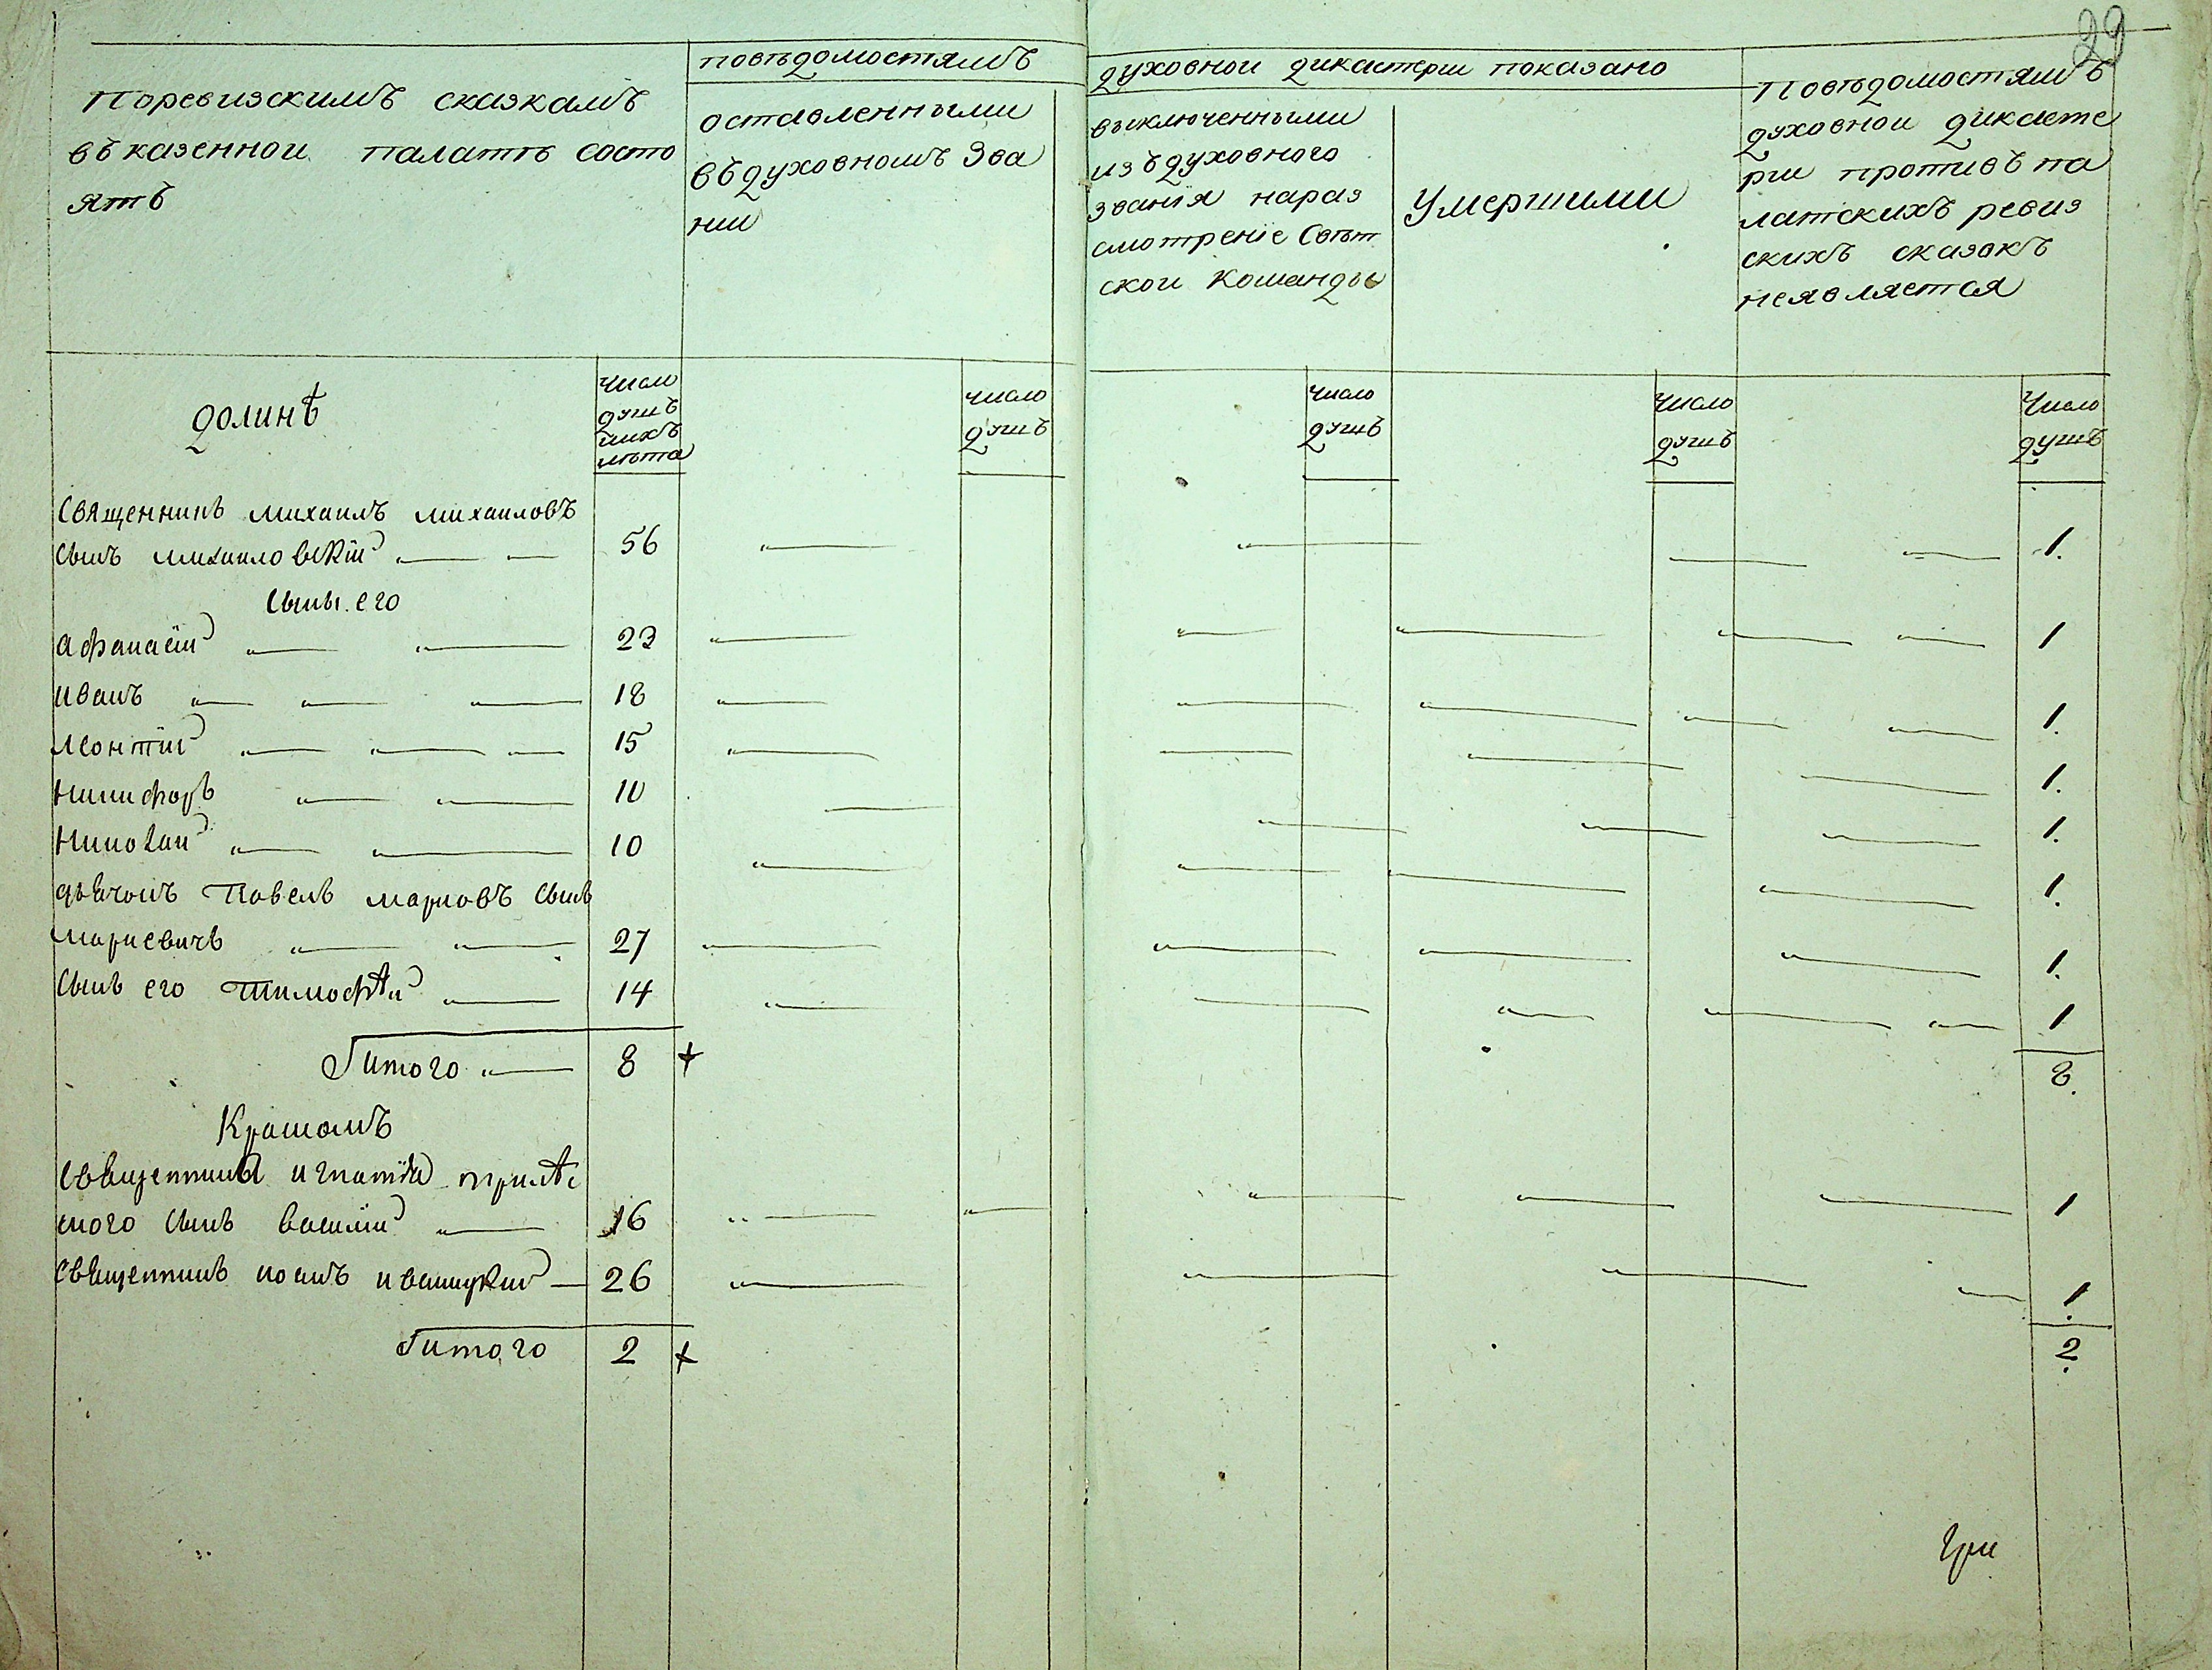 29
Поревизскимъ сказкамъ
въ казенной палатѣ состо
ятъ
повѣдомостямъ
духовной дикастерии показано
оставленными
въ духовномъ Зва
нии
выключенными
изъ духовного
званія нараз
смотреніе Свѣт
ской Команды
Умершими
Повѣдомостямъ
духовной дикасте
рии противъ па
латскихъ ревиз
скихъ сказакъ
неявляется
долинѣ
число
душъ
ихъ
лѣта
число
душъ
Число
душъ
Число
душъ
Число
душъ
Священникъ михаилъ михаиловъ
Сынъ михаиловскій 56 1.
Сыны его
Афанасій 23 1
иванъ 18 1.
Леонтій 15 1.
Никифоръ 10 1.
Николай 10 1.
дьячокъ Павелъ марковъ Сынъ
маркевичъ 27 1.
Сынъ его Тимофѣй 14 1
итого 8 + 8.
Священника игнатія
ского Сынъ василій 16 1
Священникъ иоанъ 26 1.
итого 2 + 2.